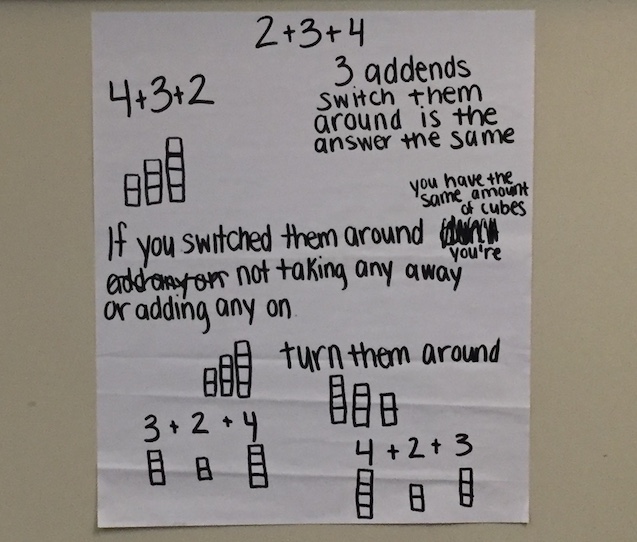 2+3+4
4+3+2
3 addends
switch them
around is the
answer the same
you have the
same amount
of cubes
If you switched them around
you're
add any on not taking any away
or adding any on
turn them around
3 + 2 + 4
4 + 2 + 3